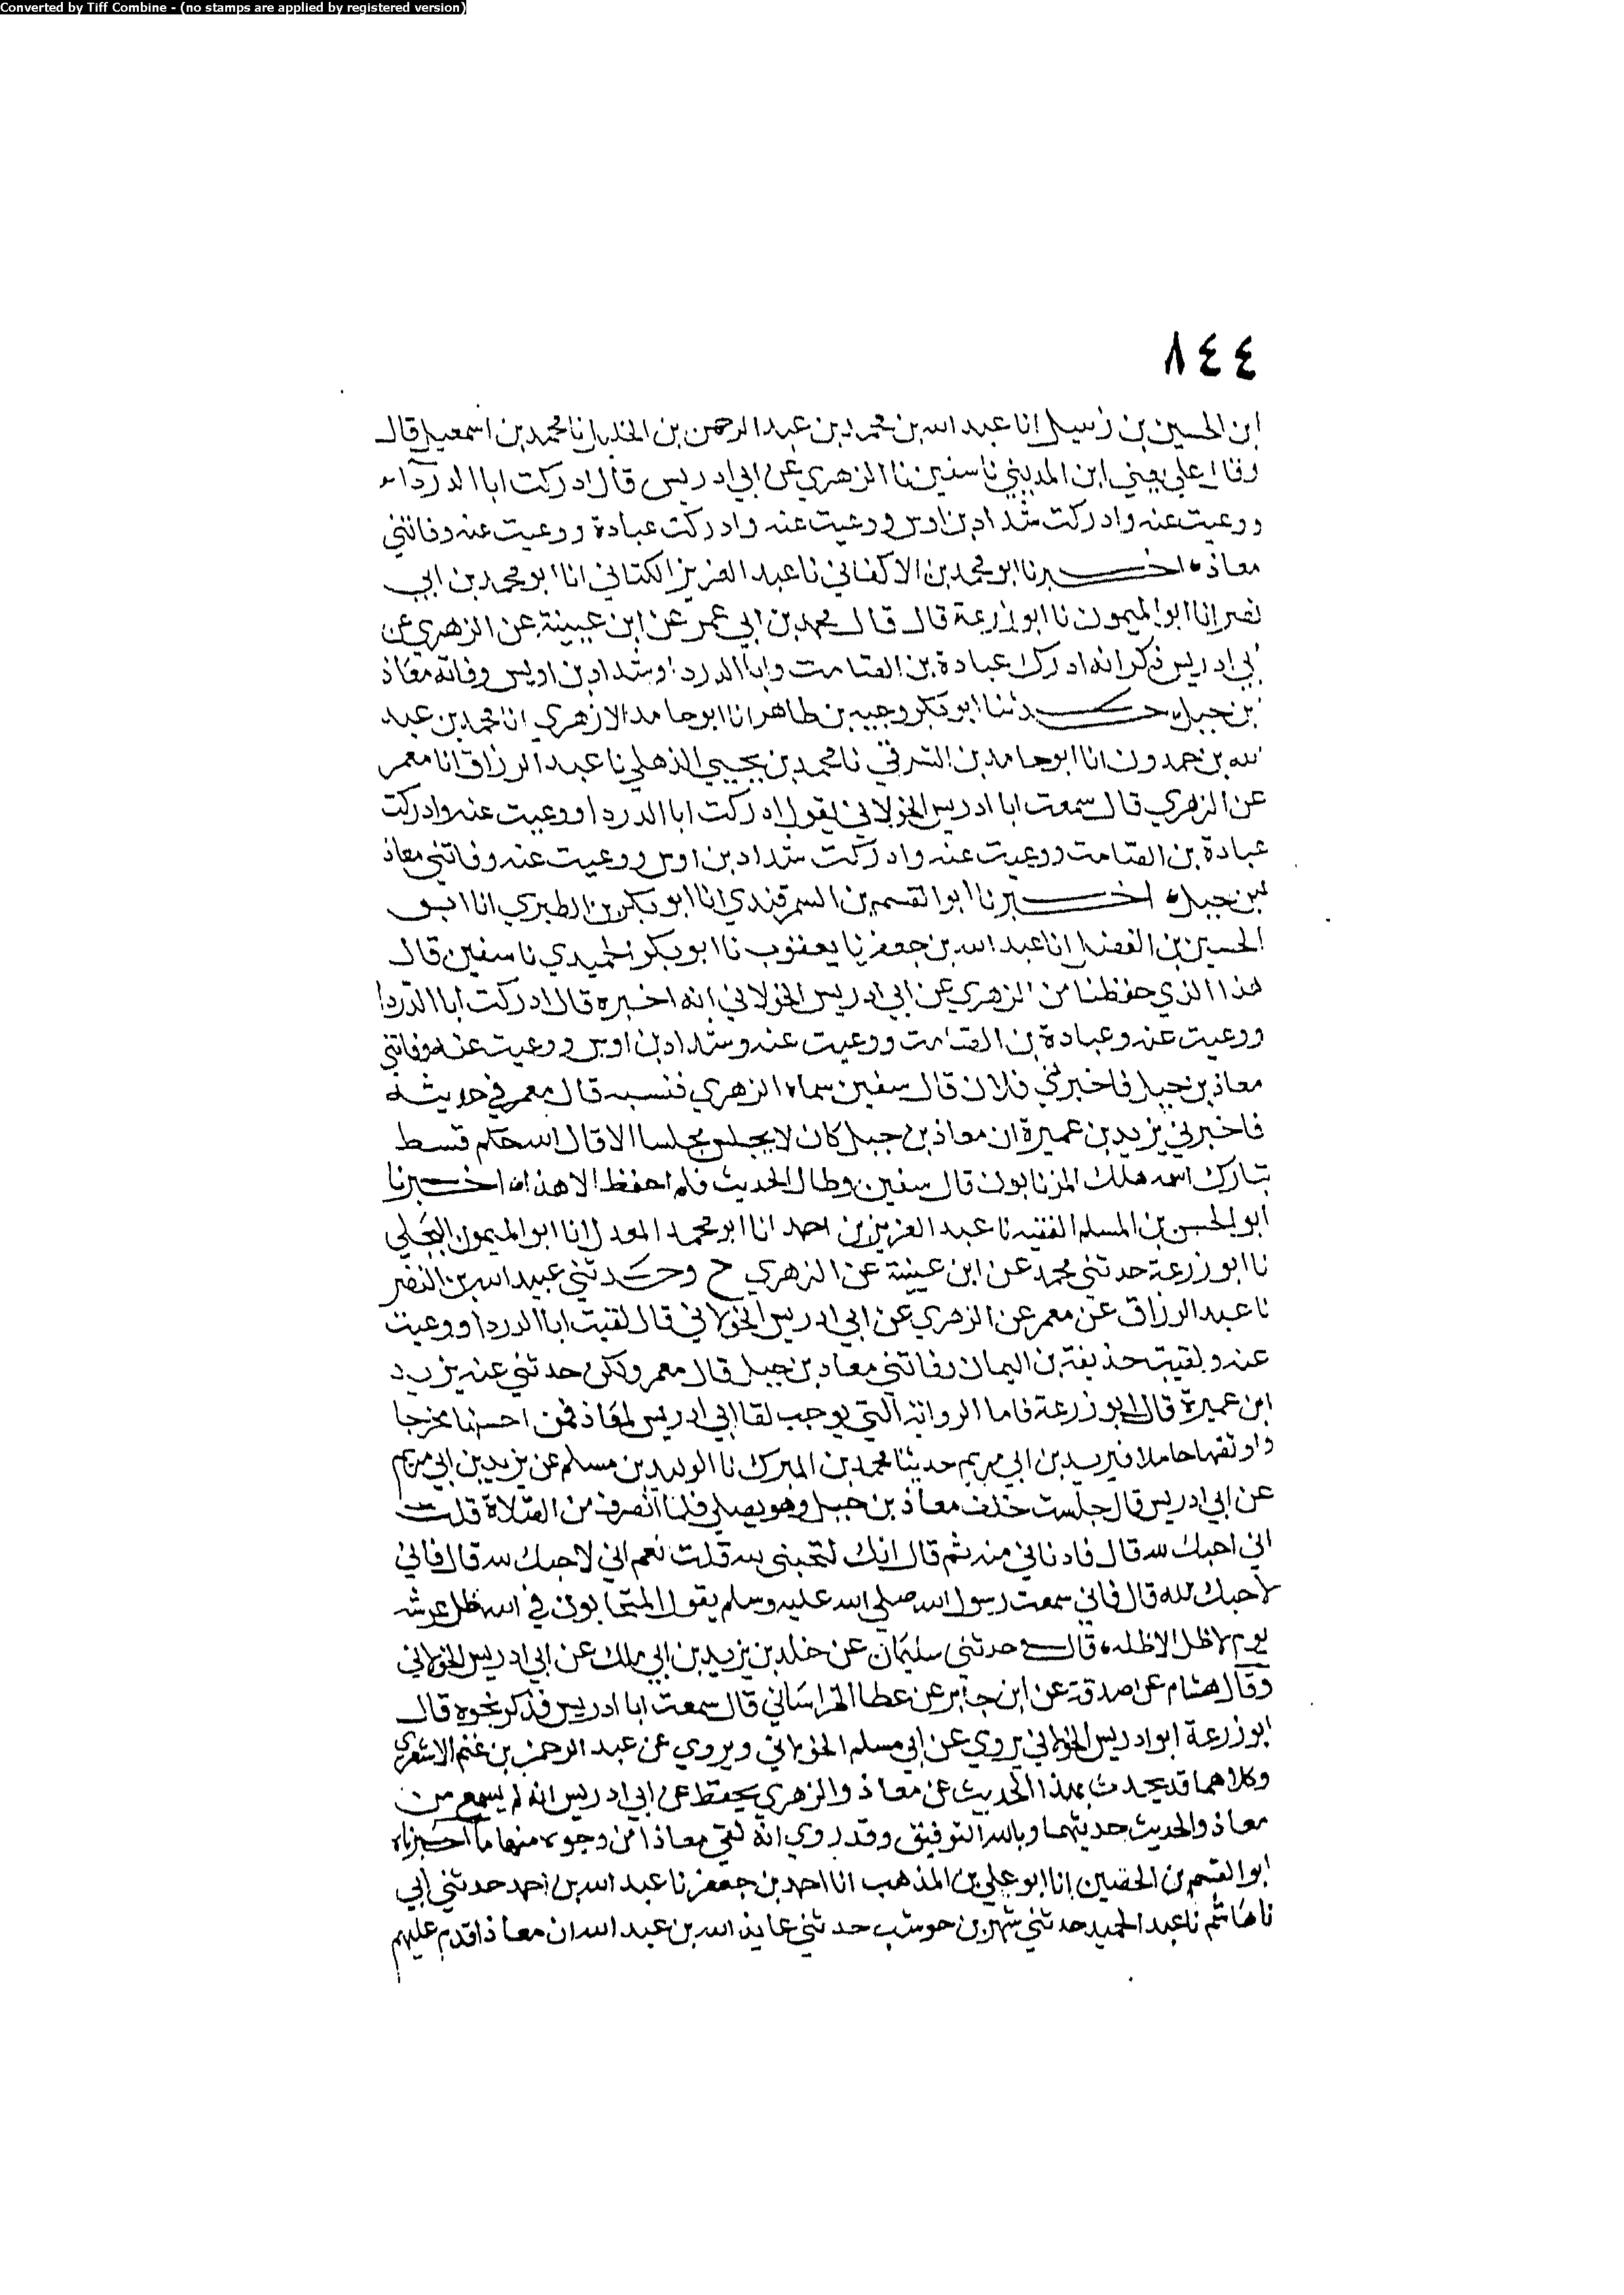 Converted by Tiff Combine - (no stamps are applied by registered version)
٨٤٤
ابن الحسين بن زنبيل انا عبد الله بن محمد بن عبد الرحمن بن الخليل نا محمد بن اسمعيل قال
وقال علي يعني ابن المديني نا سفين نا الزهري عن ابي ادريس قال ادركت ابا الدرداء
ووعيت عنه وادركت شداد بن اوس ووعيت عنه وادركت عبادة ووعيت عنه وفاتني
معاذ ٥ اخبرنا ابو محمد بن الاكفاني نا عبد العزيز الكتاني انا ابو محمد بن ابي
نصر انا ابو الميمون نا ابو زرعة قال قال محمد بن ابي عمر عن ابن عيينة عن الزهري عن
ابي ادريس ذكر انه ادرك عبادة بن الصامت وابا الدردا وشداد بن اويس وفاته معاذ
بن جبل ٥ حدثنا ابو بكر وجيه بن طاهر انا ابو حامد الازهري انا محمد بن عبد
الله بن حمدون انا ابو حامد بن الشرقي نا محمد بن يحيى الذهلي نا عبد الرزاق انا معمر
عن الزهري قال سمعت ابا ادريس الخولاني يقول ادركت ابا الدردا ووعيت عنه وادركت
عبادة بن الصامت ووعيت عنه وادركت شداد بن اوس ووعيت عنه وفاتني معاذ
بن جبل ٥ اخبرنا ابو القسم بن السمرقندي انا ابو بكر بن الطبري انا ابو
الحسين بن الفضل انا عبد الله بن جعفر نا يعقوب نا ابو بكر الحميدي نا سفين قال
هذا الذي حفظنا من الزهري عن ابي ادريس الخولاني انه اخبره قال ادركت ابا الدردا
ووعيت عنه وعبادة بن الصامت ووعيت عنه وشداد بن اوس ووعيت عنه وفاتني
معاذ بن جبل فاخبرني فلان قال سفين سماه الزهري فنسيه قال معمر في حديثه
فاخبرني يزيد بن عميرة ان معاذ بن جبل كان لا يجلس مجلسا الا قال الله حكم قسط
تبارك اسمه هلك المرتابون قال سفين وطال الحديث فلم احفظ الا هذا ٥ اخبرنا
ابو الحسن بن المسلم الفقيه نا عبد العزيز بن احمد انا ابو محمد المعدل انا ابو الميمون البجلي
نا ابو زرعة حدثني محمد عن ابن عيينة عن الزهري ح وحدثني عبيد الله بن النضر
نا عبد الرزاق عن معمر عن الزهري عن ابي ادريس الخولاني قال لقيت ابا الدردا ووعيت
عنه ولقيت حذيفة بن اليمان وفاتني معاذ بن جبل قال معمر ولكن حدثني عنه يزيد
ابن عميرة قال ابو زرعة فاما الرواية التي يوجب لقا ابي ادريس لمعاذ فمن احسنها مخرجا
واوثقها حاملا فيزيد بن ابي مريم حدثنا محمد بن المبرك نا الوليد بن مسلم عن يزيد بن ابي مريم
عن ابي ادريس قال جلست خلف معاذ بن جبل وهو يصلي فلما انصرف من الصلاة قلت
اني احبك لله قال فادناني منه ثم قال انك لتحبني لله قلت نعم اني لاحبك لله قال فاني
لاحبك لله قال فاني سمعت رسول الله صلى الله عليه وسلم يقول المتحابون في الله في ظل عرشه
يوم لا ظل الا ظله ٥ قال وحدثني سليمان عن خلد بن يزيد بن ابي ملك عن ابي ادريس الخولاني
وقال هشام عن صدقة عن ابن جابر عن عطا الخراساني قال سمعت ابا ادريس فذكر نحوه قال
ابو زرعة ابو ادريس الخولاني يروي عن ابي مسلم الخولاني ويروي عن عبد الرحمن بن غنم الاشعري
وكلاهما قد يحدث بهذا الحديث عن معاذ والزهري يحفظ عن ابي ادريس انه لم يسمع من
معاذ والحديث حديثهما وبالله التوفيق وقد روي انه لقي معاذا من وجوه منها ما اخبرناه
ابو القسم بن الحصين انا ابو علي بن المذهب انا احمد بن جعفر نا عبد الله بن احمد حدثني ابي
نا هاشم نا عبد الحميد حدثني شهر بن حوشب حدثني عايذ الله بن عبد الله ان معاذا قدم عليهم